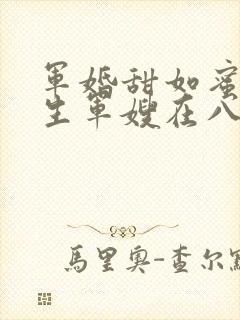 軍婚甜如蜜
生軍嫂在八
馬里奧-查尔